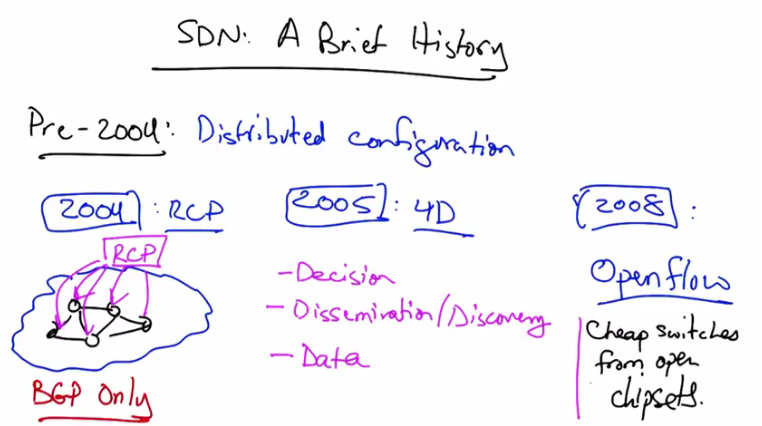 SDN: A Brief History
Pre-2004: Distributed configuration
2004: RCP
RCP
BGP Only
2005: 4D
- Decision
- Dissemination/Discovery
- Data
2008:
Openflow
Cheap switches
from open
chipsets.